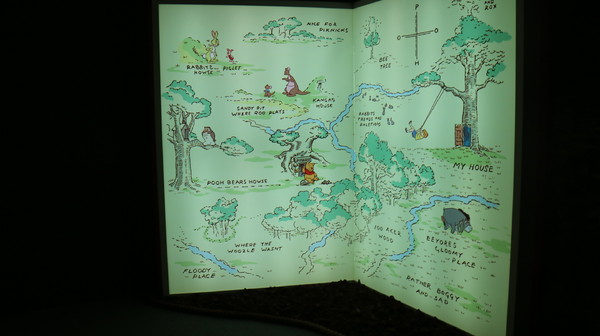 NICE FOR
PIKNICKS
RABBITS
HOUSE
PIGLET
SANDY PIT
WHERE ROO PLAYS
KANGAS
HOUSE
POOH BEARS HOUSE
WHERE THE
WOOZLE WASNT
FLOODY
PLACE
P
O
O
H
BEE
TREE
RABBITS
FRENDS AND
RALETIONS
MY HOUSE
100 AKER
WOOD
EEYORES
GLOOMY
PLACE
RATHER BOGGY
AND SAD